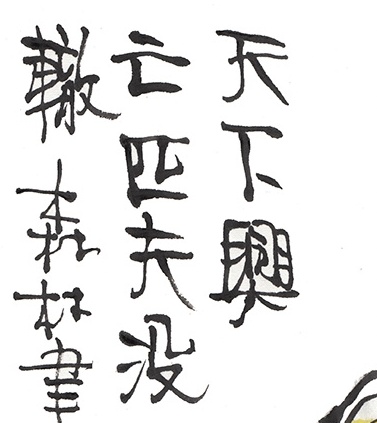 天下興
亡匹夫没
轍 森林